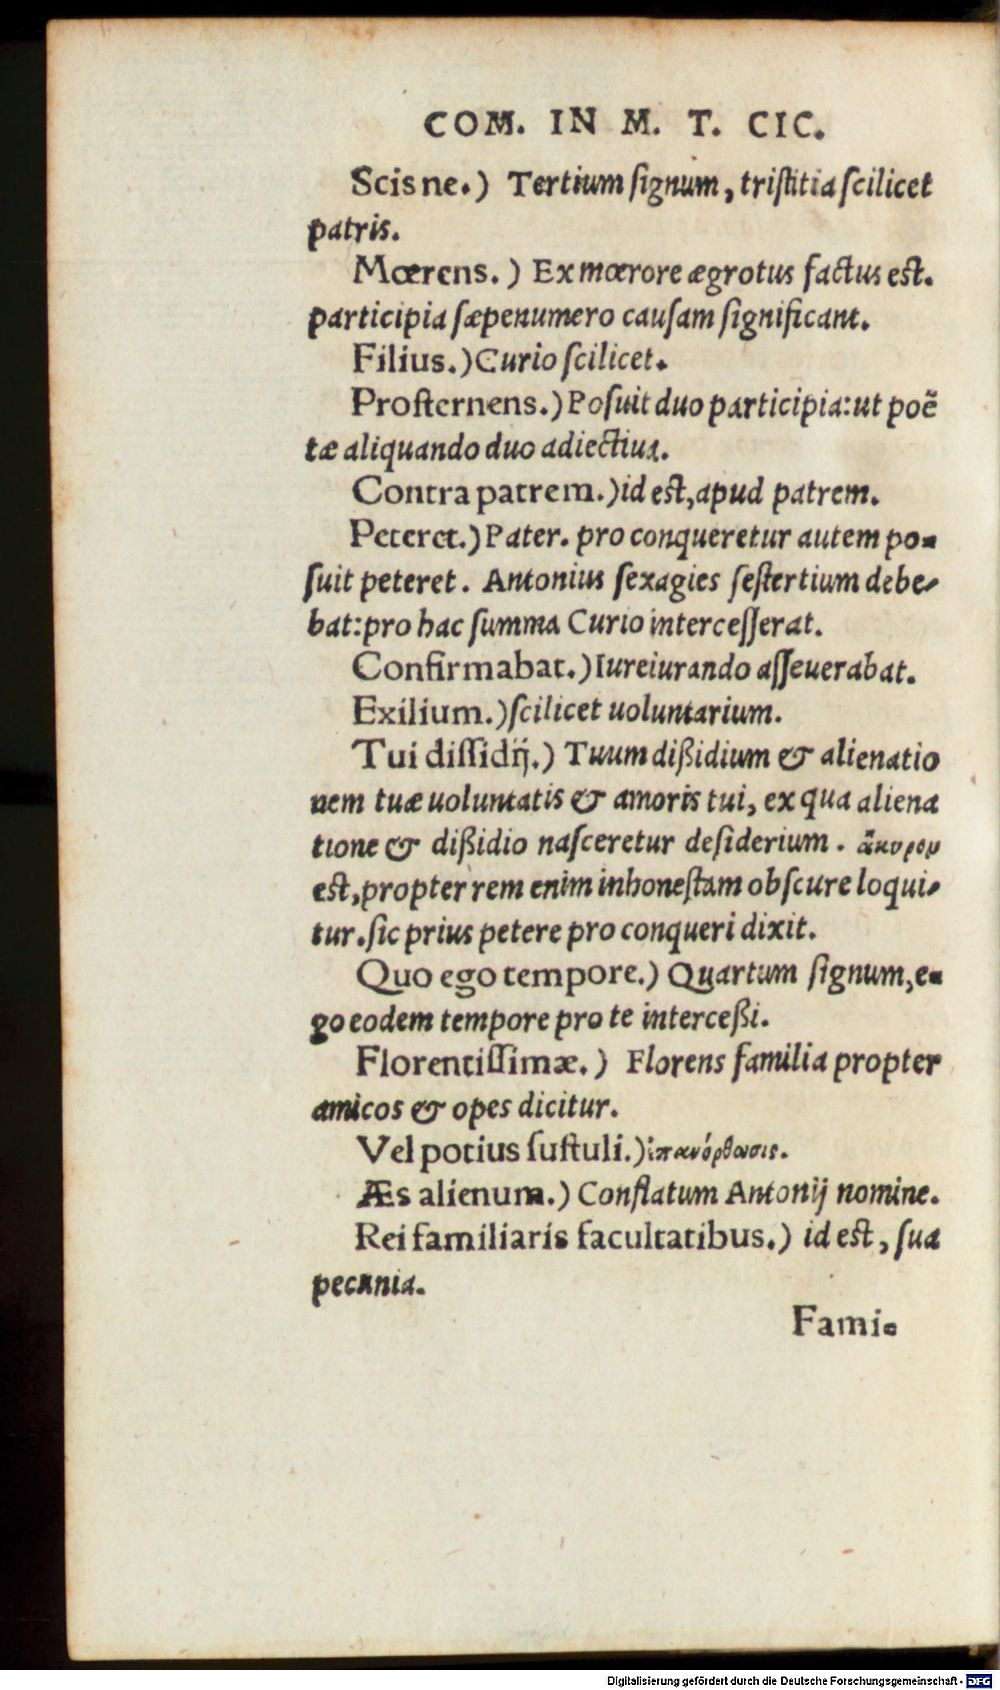 COM. IN M. T. CIC.
Scis ne.) Tertium ſignum, triſtitia ſcilicet
patris.
Mœrens.) Ex mœrore ægrotus factus eſt.
participia ſæpenumero cauſam ſignificant.
Filius.) Curio ſcilicet.
Proſternens.) Poſuit duo participia: ut poẽ
tæ aliquando duo adiectiua.
Contra patrem.) id eſt, apud patrem.
Peteret.) Pater. pro conqueretur autem po-
ſuit peteret. Antonius ſexagies ſeſtertium debe-
bat: pro hac ſumma Curio interceſſerat.
Confirmabat.) Iureiurando aſſeuerabat.
Exilium.) ſcilicet uoluntarium.
Tui diſſidij.) Tuum dißidium & alienatio
nem tuæ uoluntatis & amoris tui, ex qua aliena
tione & dißidio naſceretur deſiderium. ἄκυρον
eſt, propter rem enim inhoneſtam obſcure loqui-
tur. ſic prius petere pro conqueri dixit.
Quo ego tempore.) Quartum ſignum, e-
go eodem tempore pro te interceßi.
Florentiſſimæ.) Florens familia propter
amicos & opes dicitur.
Vel potius ſuſtuli.) ἐπανόρθωσις.
Æs alienum.) Conflatum Antonij nomine.
Rei familiaris facultatibus.) id eſt, ſua
pecunia.
Fami-
Digitalisierung gefördert durch die Deutsche Forschungsgemeinschaft - DFG